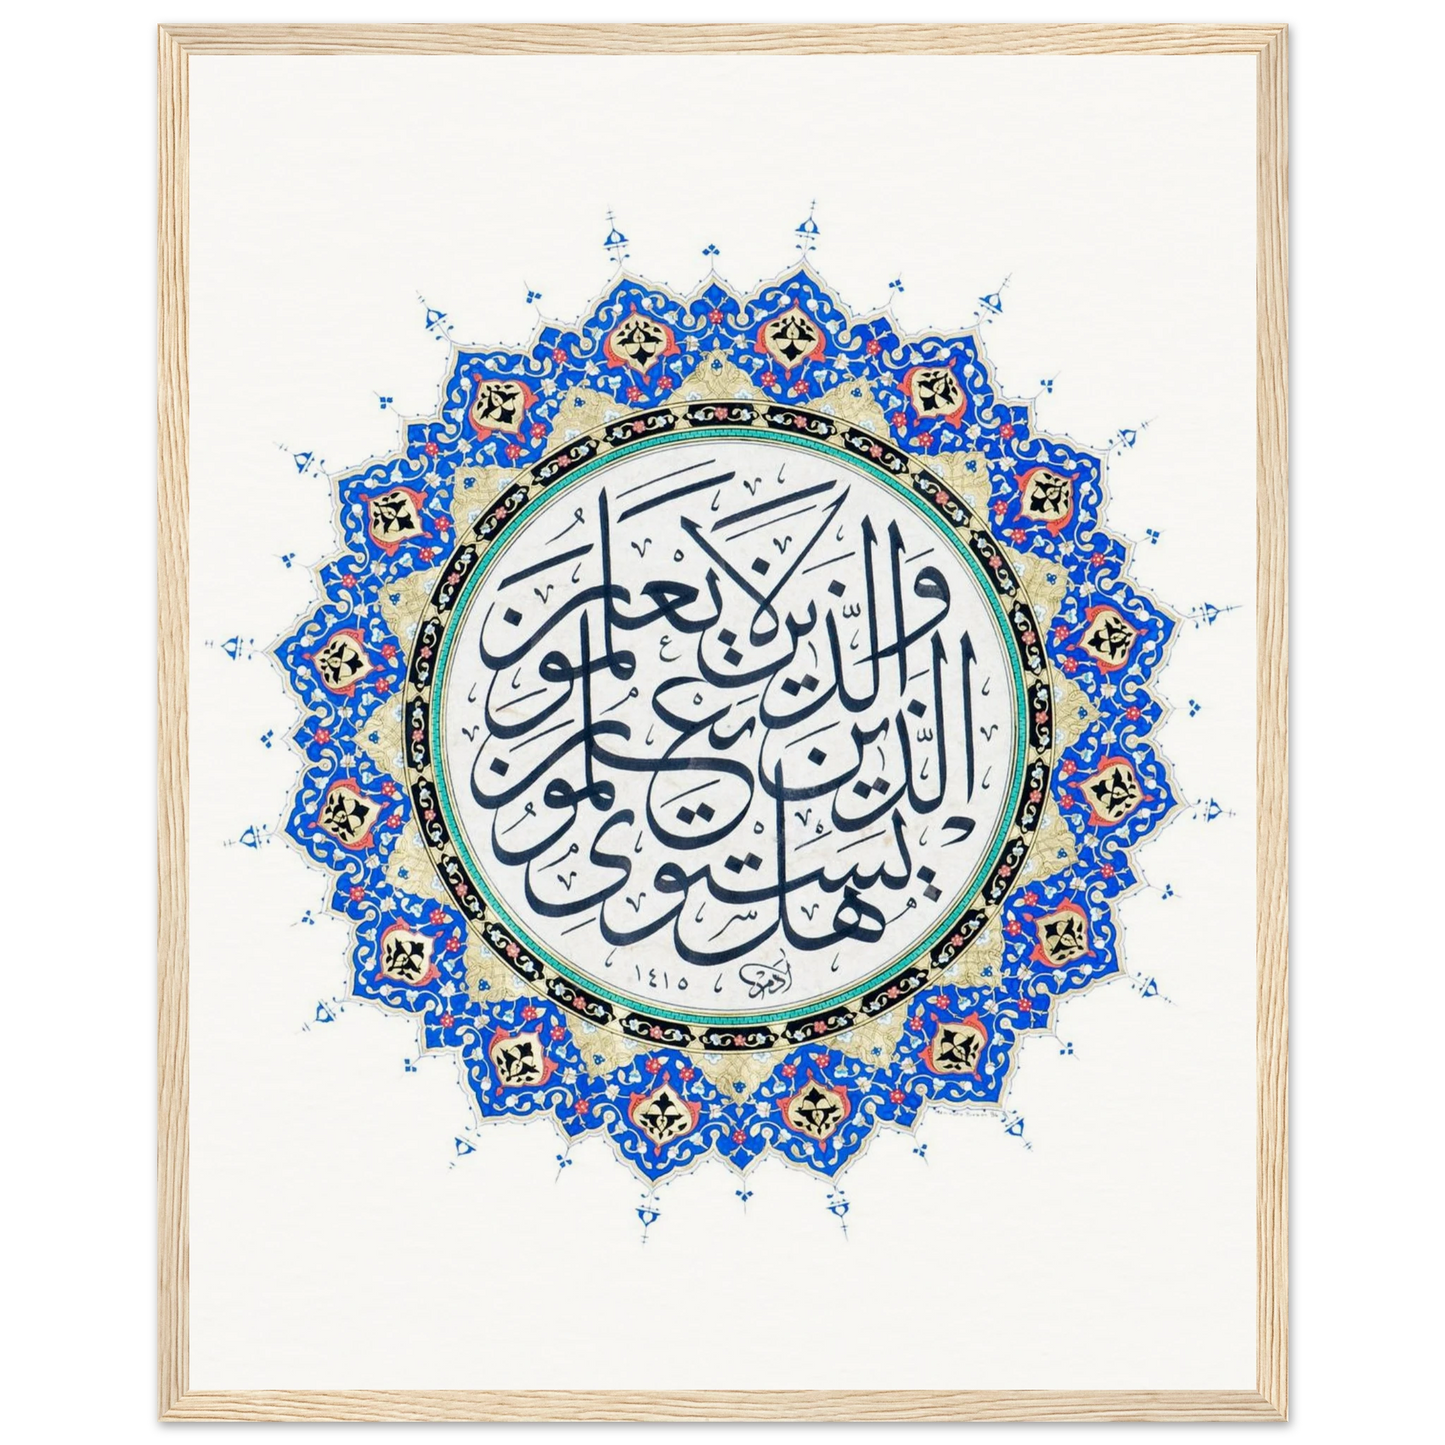 هَلْ يَسْتَوِي
الَّذِينَ يَعْلَمُونَ
وَالَّذِينَ لَا يَعْلَمُونَ
١٤١٥